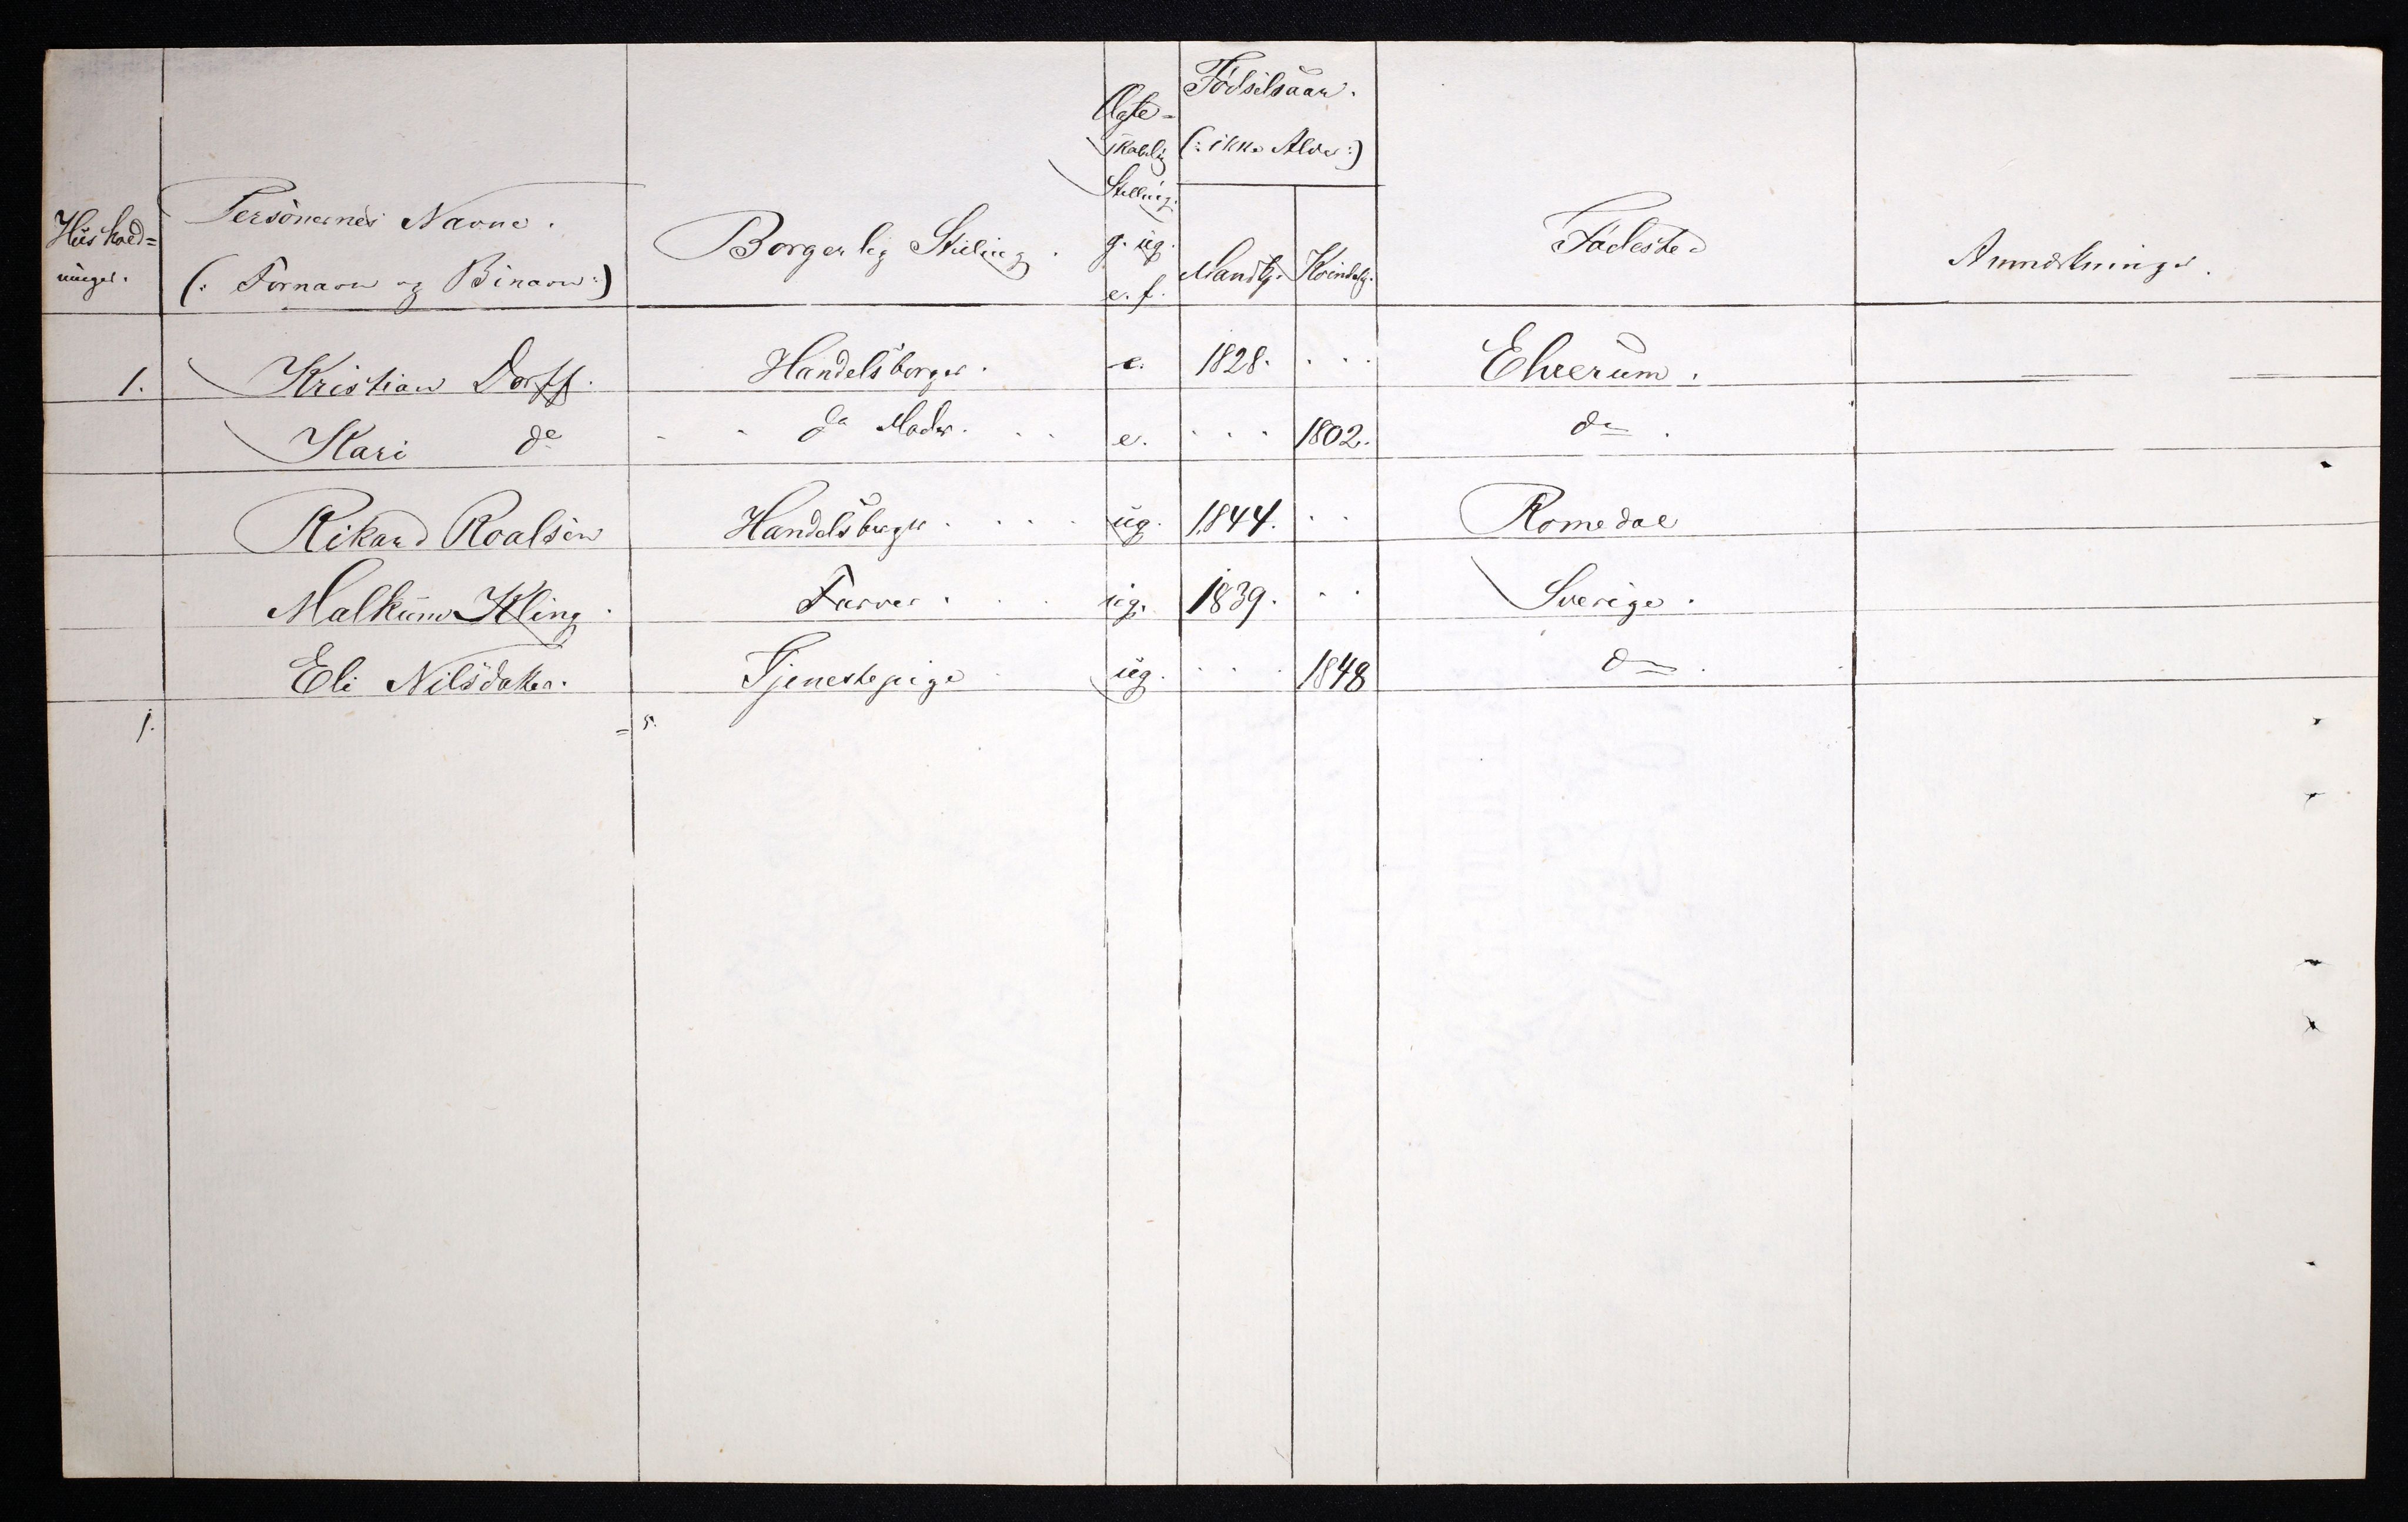 Hushold=
ninger.
Personernes Navne.
(: Fornavn og Binavn :)
Borgerlig Stilling.
Ægte=
skabelig
Stilling.
g. ug.
e. f.
Fødselsaar.
(: ikke Alder :)
Mandkj.
Kvindekj.
Fødested
Anmærkninger.
1. Kristian Dorff. Handelsborger. e. 1828. Elverum.
Kari do do Moder. e. 1802. do.
Rikard Roalsen Handelsborger ug. 1844. Romedal
Malkum Kling. Farver ug. 1839. Sverige.
Eli Nilsdatter. Tjenestepige ug. 1848 do.
1. = 5.